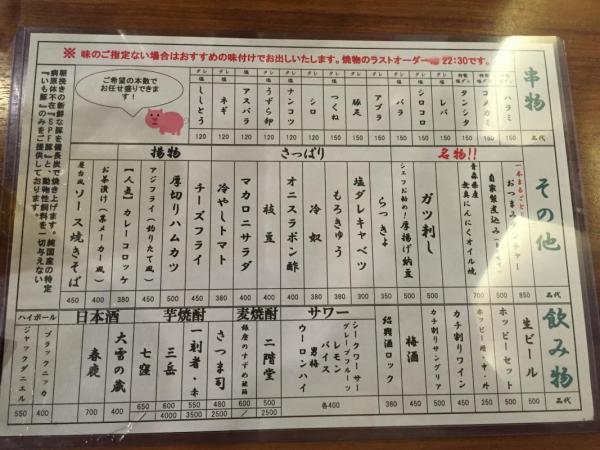 ※ 味のご指定ない場合はおすすめの味付けでお出しいたします。焼物のラストオーダー 22:30です。
串物
品代
ハラミ
コメカミ
タンシタ
レバ
シロコロ
バラ
アブラ
豚足
つくね
シロ
ナンコツ
うずら卵
アスパラ
ネギ
ししとう
150
150
150
150
150
150
150
150
150
120
120
120
120
120
120
ご希望の本数で
お任せ盛りできます!
朝挽きの新鮮な豚を備長炭で焼き上げます。純国産の特定
病原体不在『SPF豚』と、動物性飼料を一切与えない
『いも豚』のみをご提供しております。
その他
品代
名物!!
おつまみ
850
自家製煮込み
500
青森県産
にんにくオイル焼
700
ガツ刺し
500
シェフお勧め!厚揚げ納豆
500
らっきょ
450
さっぱり
塩ダレキャベツ
350
もろきゅう
300
冷奴
300
オニスラポン酢
350
枝豆
400
マカロニサラダ
400
冷やしトマト
400
揚物
チーズフライ
450
厚切りハムカツ
500
アジフライ(釣りたて風)
450
【人気】カレーコロッケ
380
お茶漬け(某メーカー風)
400
屋台風ソース焼きそば
450
飲み物
品代
生ビール
500
ホッピーセット
500
ホッピー関・中・外
250
カチ割りワイン
450
カチ割りサングリア
500
梅酒
450
紹興酒ロック
380
サワー
シークワーサー
グレープフルーツ
レモン
バイス
男梅
ウーロンハイ
各400
麦焼酎
二階堂
500
2500
銀座のすずめ
600
芋焼酎
さつま司
480
2500
一刻者・赤
550
3500
三岳
600
4000
七窪
650
日本酒
大雪の蔵
400
春鹿
700
ハイボール
ブラックニッカ
400
ジャックダニエル
550